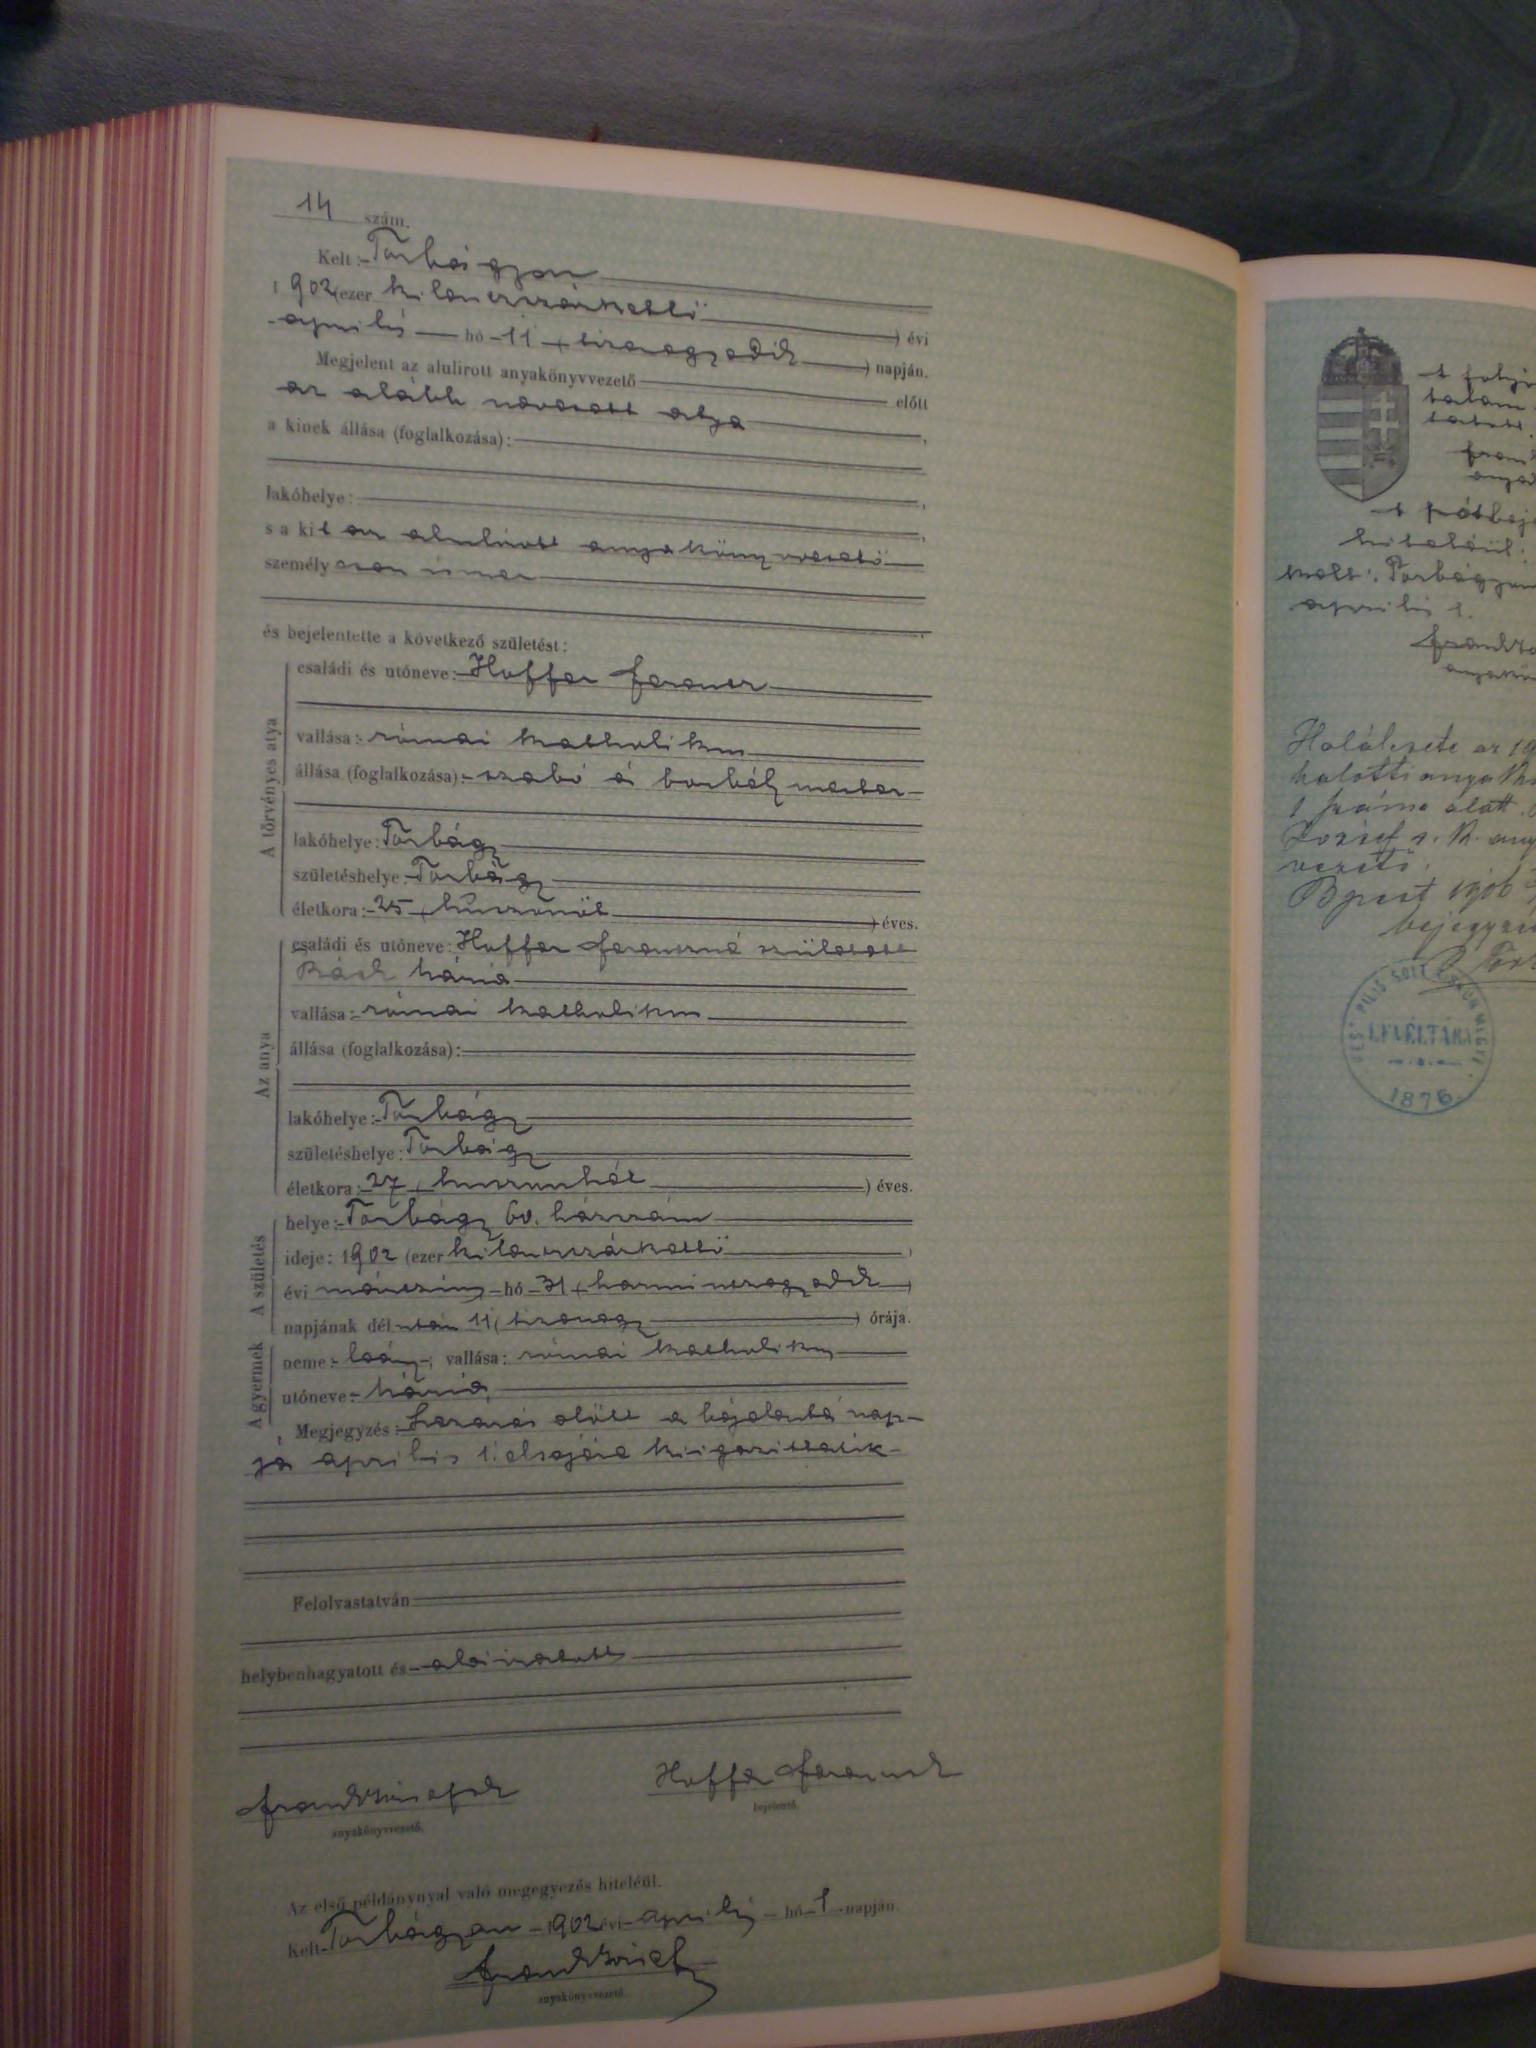 14 szám.
Kelt: Torbágyon
1902 (ezer kilenczszázkettő) évi
április hó 11 (tizenegyedik) napján.
Megjelent az alulirott anyakönyvvezető előtt
az alább nevezett atya,
a kinek állása (foglalkozása):
lakóhelye:
s a kit az alulirott anyakönyvvezető
személyesen ismer
és bejelentette a következő születést:
A törvényes atya
családi és utóneve: Hoffer Ferencz
vallása: római katholikus
állása (foglalkozása): szabó és borbély mester
lakóhelye: Torbágy
születéshelye: Torbágy
életkora: 25 (huszonöt) éves.
Az anya
családi és utóneve: Hoffer Ferenczné született
Mária
vallása: római katholikus
állása (foglalkozása):
lakóhelye: Torbágy
születéshelye: Torbágy
életkora: 27 (huszonhét) éves.
A születés
helye: Torbágy 60. házszám
ideje: 1902 (ezer kilenczszázkettő)
évi márczius hó 31 (harminczegyedik)
napjának délután 11 (tizenegy) órája.
A gyermek
neme: leány; vallása: római katholikus
utóneve: Mária
Megjegyzés: Lezárás előtt a bejelentés nap-
ja április 1. elsejére kiigazittatik
Felolvastatván
helybenhagyatott és aláiratott
anyakönyvvezető.
Hoffer Ferencz
bejelentő.
Az első példánynyal való megegyezés hiteléül.
Kelt Torbágyon 1902 évi április hó 1 napján.
anyakönyvvezető.
hiteléül.
Kelt: Torbágyon
április 1.
Halálesete az 19
halotti
1 száma alatt.
József
vezető.
Bpest 1906
PEST PILIS SOLT
LEVÉLTÁRA
1876.